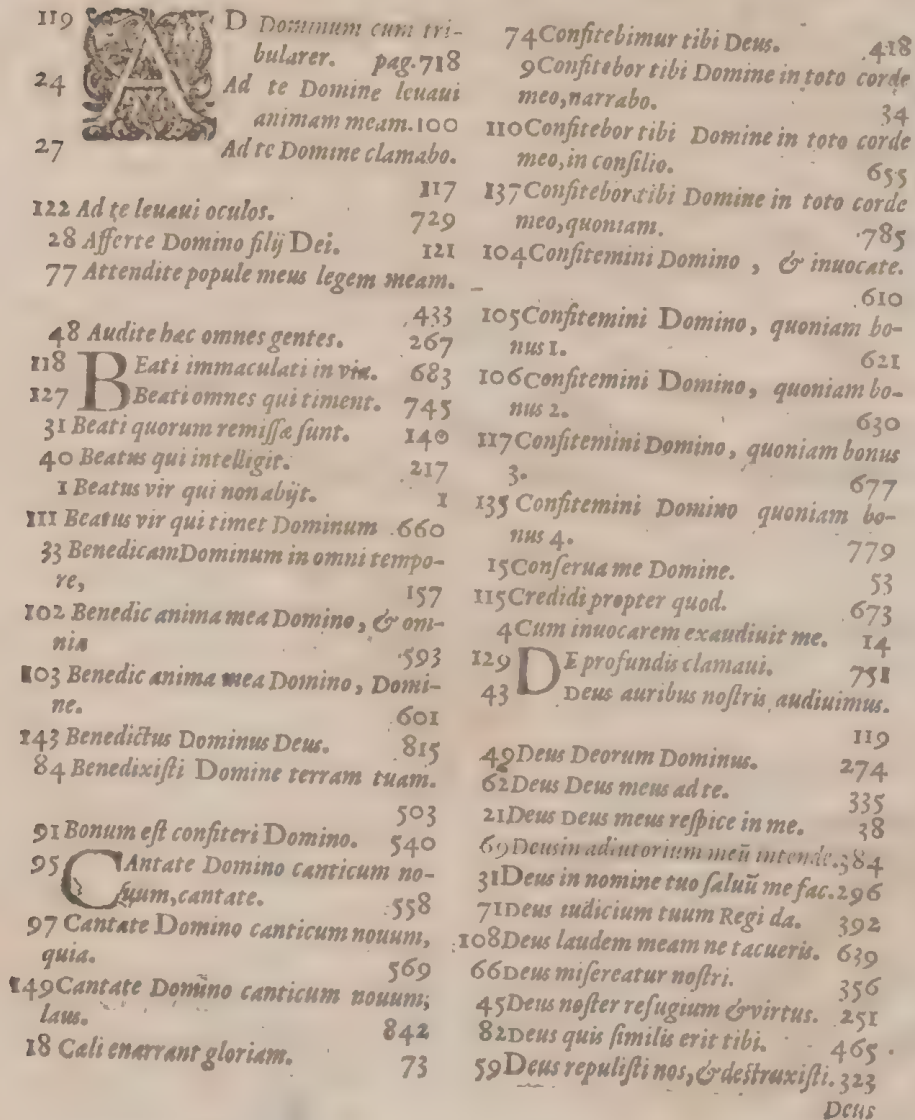 119 AD Dominum cum tri-
bularer. pag.718
24 Ad te Domine leuaui
animam meam.100
27 Ad te Domine clamabo.
117
122 Ad te leuaui oculos. 729
28 Afferte Domino filij Dei. 121
77 Attendite popule meus legem meam.
.433
48 Audite hæc omnes gentes. 267
118 BEati immaculati in via. 683
127 Beati omnes qui timent. 745
31 Beati quorum remissæ sunt. 140
40 Beatus qui intelligit. 217
1 Beatus vir qui non abijt. 1
111 Beatus vir qui timet Dominum .660
33 Benedicam Dominum in omni tempo-
re, 157
102 Benedic anima mea Domino, & om-
nia .593
103 Benedic anima mea Domino, Domi-
ne. .601
143 Benedictus Dominus Deus. 815
84 Benedixisti Domine terram tuam.
503
91 Bonum est confiteri Domino. 540
95 CAntate Domino canticum no-
uum,cantate. .558
97 Cantate Domino canticum nouum,
quia. 569
149 Cantate Domino canticum nouum,
laus. 842
18 Cæli enarrant gloriam. 73
74 Confitebimur tibi Deus. .418
9 Confitebor tibi Domine in toto corde
meo,narrabo. 34
110 Confitebor tibi Domine in toto corde
meo,in consilio. 655
137 Confitebor tibi Domine in toto corde
meo,quoniam. .785
104 Confitemini Domino , & inuocate.
.610
105 Confitemini Domino, quoniam bo-
nus 1. 621
106 Confitemini Domino, quoniam bo-
nus 2. 630
117 Confitemini Domino, quoniam bonus
3. 677
135 Confitemini Domino quoniam bo-
nus 4. 779
15 Conserua me Domine. 53
115 Credidi propter quod. 673
4 Cum inuocarem exaudiuit me. 14
129 DE profundis clamaui. 751
43 Deus auribus nostris audiuimus.
119
49 Deus Deorum Dominus. 274
62 Deus Deus meus ad te. 335
21 Deus Deus meus respice in me. 38
69 Deus in adiutorium meũ intende.384
31 Deus in nomine tuo saluũ me fac.296
71 Deus iudicium tuum Regi da. 392
108 Deus laudem meam ne tacueris. 639
66 Deus misereatur nostri. 356
45 Deus noster refugium & virtus. 251
82 Deus quis similis erit tibi. 465.
59 Deus repulisti nos,& destruxisti.323
Deus